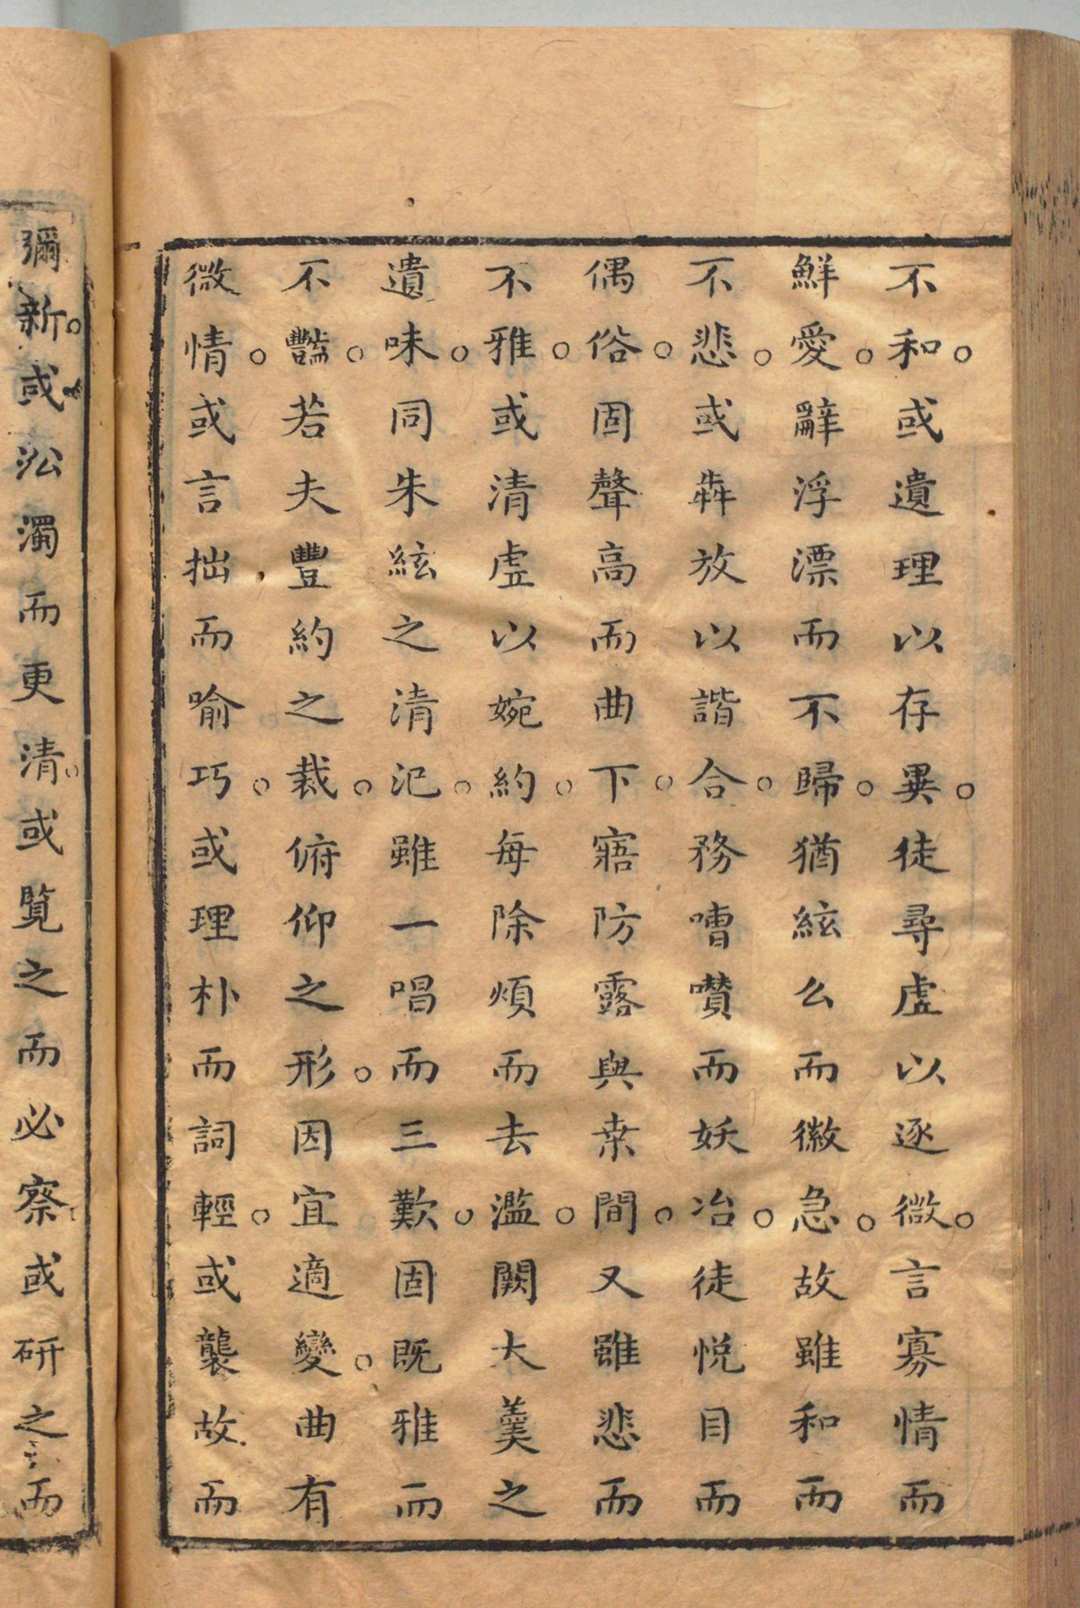 不和。或遺理以存異。徒尋虛以逐微。言寡情而
鮮愛。辭浮漂而不歸。猶絃么而徽急。故雖和而
不悲。或犇放以諧合。務嘈囋而妖冶。徒悅目而
偶俗。固聲高而曲下。寤防露與桒間。又雖悲而
不雅。或清虛以婉約。每除煩而去濫。闕大羹之
遺味。同朱絃之清汜。雖一唱而三歎。固既雅而
不豔。若夫豐約之裁。俯仰之形。因宜適變。曲有
微情。或言拙而喻巧。或理朴而詞輕。或襲故而
彌新。或㳂濁而更清。或覽之而必察。或研之而